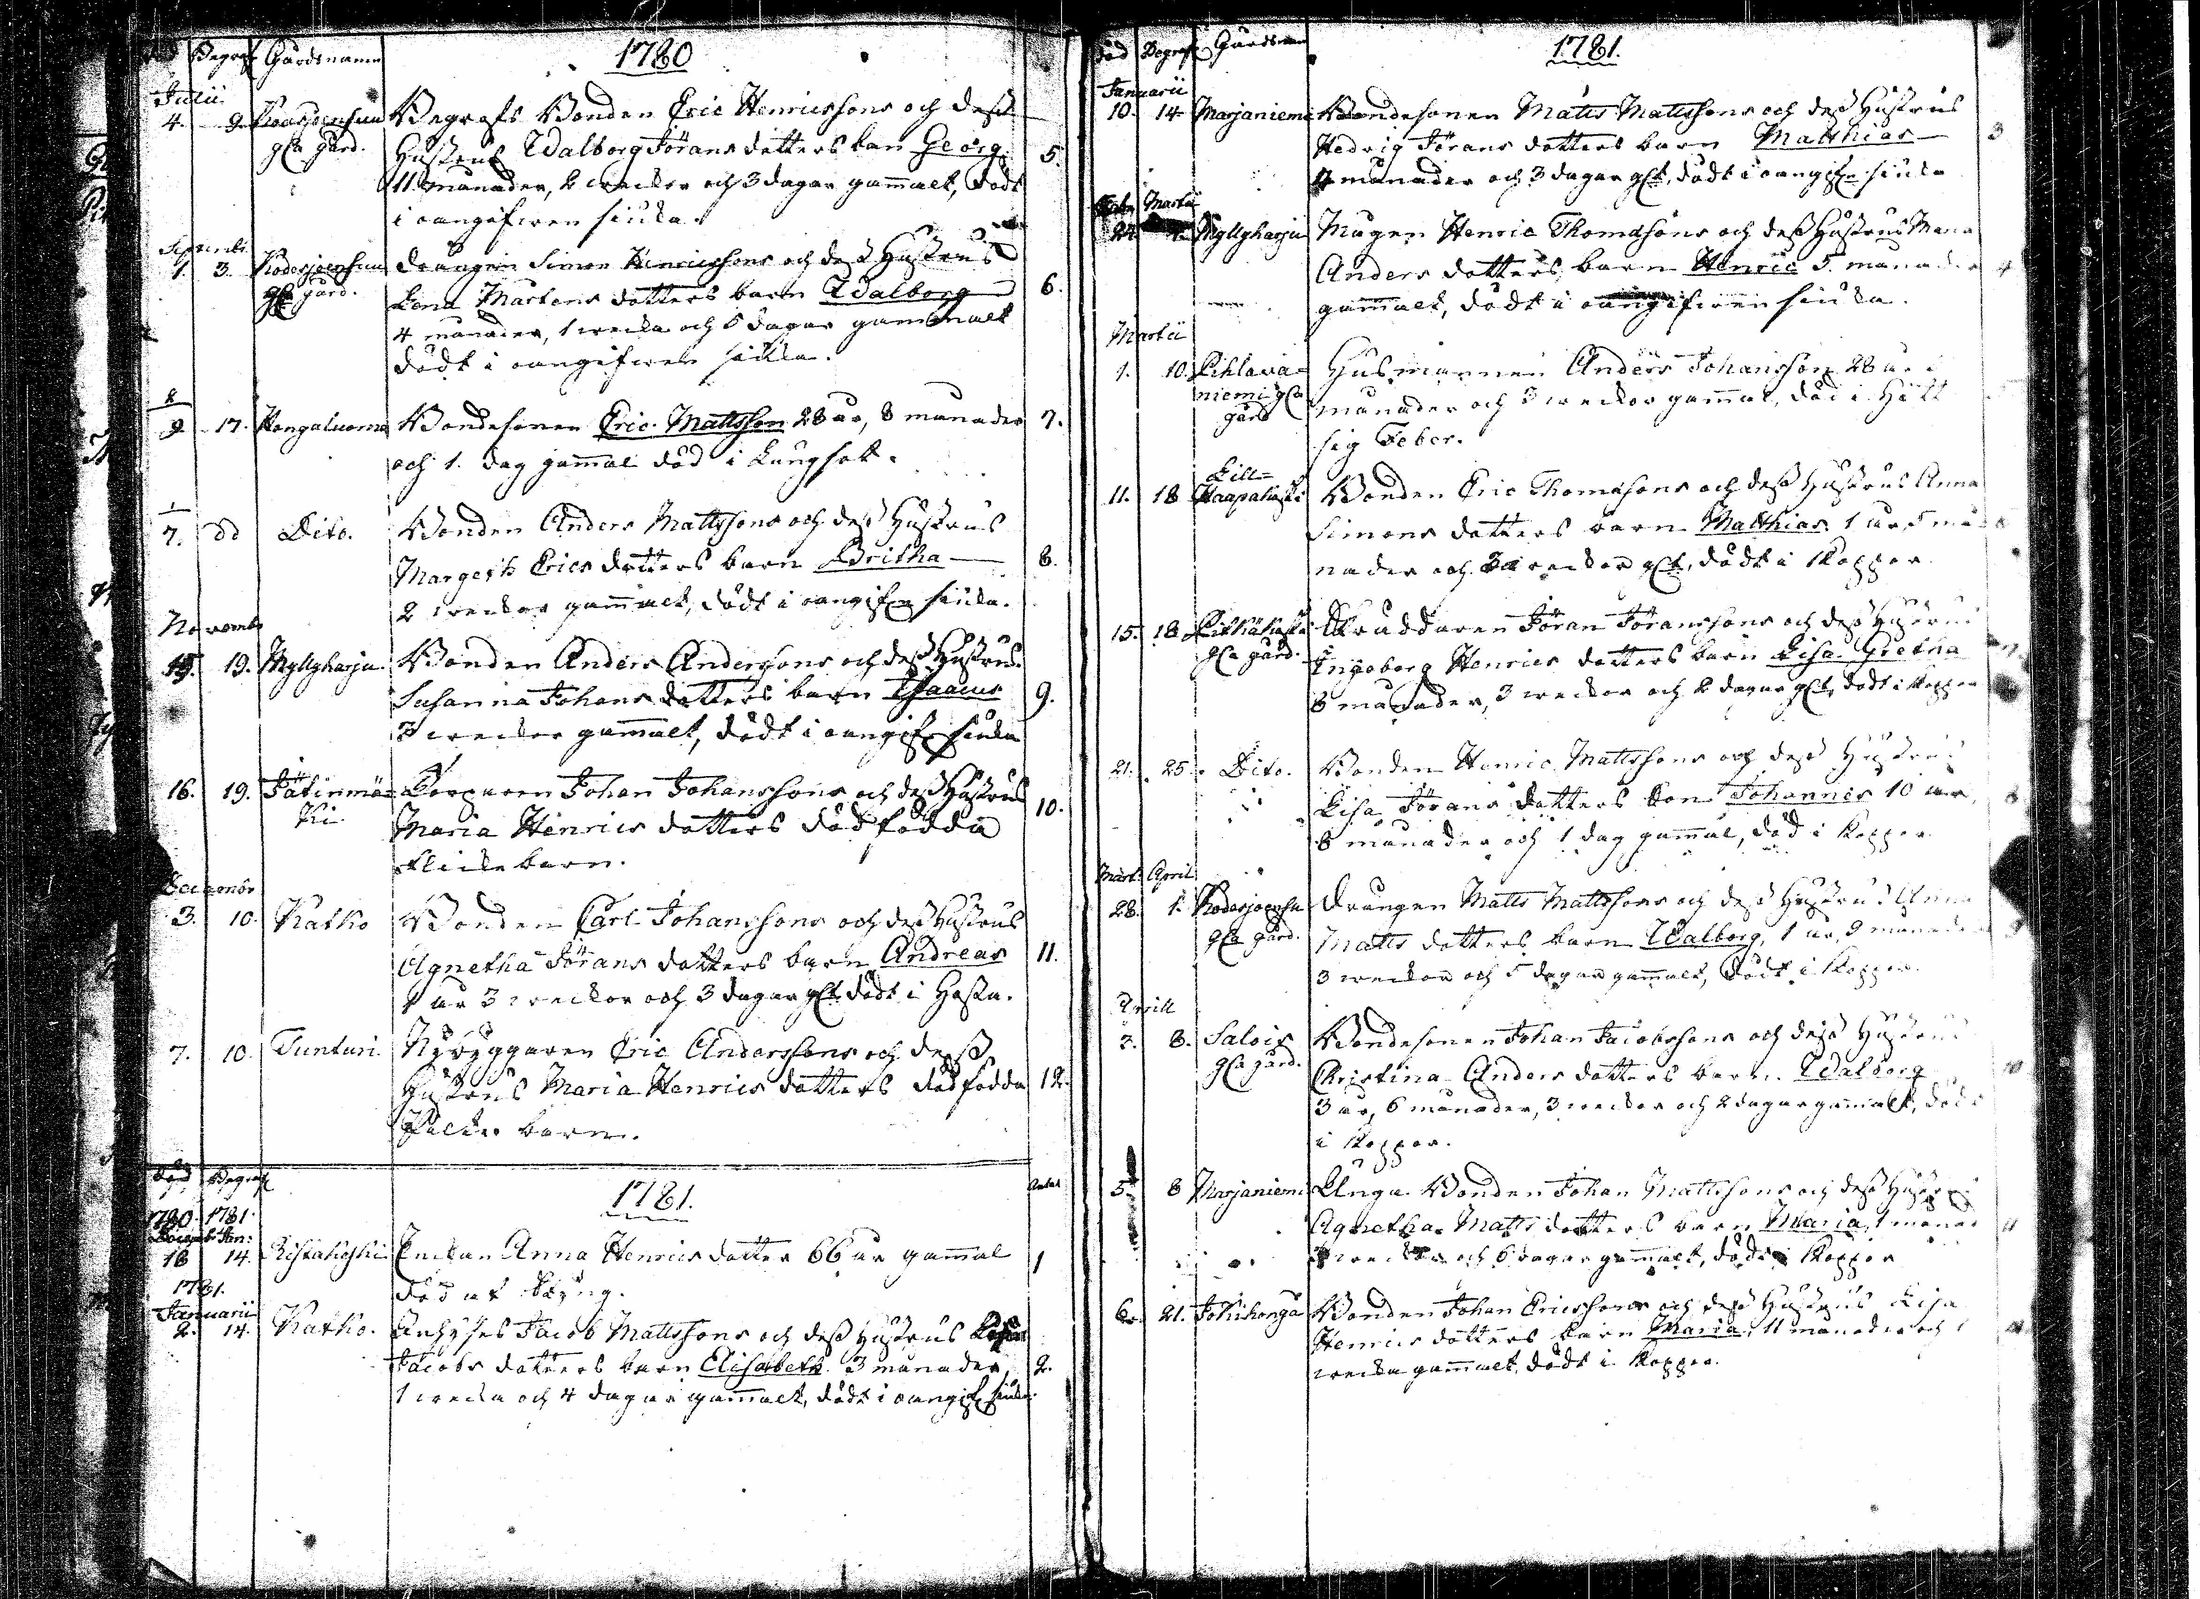 Död Begraf Gårdsnamn 1780
Julii
4. 9. Koversjoensuu Begrofs Bonden Eric Henricssons och dess
gla gård. Hustrus Walborg Jörans dotters barn Georg 5.
11 månader, 2 weckor och 3 dagar gammalt, dödt
i oangifwen siuka.
Septembr
1. 3. Koversjoensuu Drängen Simon Henricssons och dess Hustrus
gla gård. Lena Mårtens dotters barn Walborg 6.
4 månader, 1 wecka och 5 dagar gammalt
dödt i oangifwen siuka.
8
9 17. Kongaluoma Bondesonen Eric Mattsson 28 år, 8 månader 7.
och 1. dag gammal död i Lungsot.
7. dd Dito. Bonden Anders Mattssons och dess Hustrus
Margeth Erics dotters barn Britha 8.
2 weckor gammalt, dödt i oangifn siuka.
Novembr
15. 19. Myllyharju. Bonden Anders Anderssons och dess Hustrus
Susanna Johans dotters barn Isaacus 9.
3 weckor gammalt, dödt i oangifn siuka
16. 19. Jätinmä= Torparen Johan Johanssons och dess Hustrus
ki. Maria Henrics dotters dödfödda 10.
flicke barn.
Decembr
3. 10. Katko Bonden Carl Johanssons och dess Hustrus
Agnetha Jörans dotters barn Andreas 11.
1 år 3 weckor och 3 dagar glt dödt i Hosta.
7. 10. Tunturi. Nybyggaren Eric Anderssons och dess
Hustrus Maria Henrics dotters dödfödda 12.
barn.
Död Begraf 1781. Antal
1780 1781.
Decemb. Jan:
18 14. Ristakoski Enckan Anna Henrics dotter 66 år gammal 1
död af
1781.
Januarii
2. 14. Katko. Inhyses Jacob Mattssons och dess Hustrus
Jacobs dotters barn Elisabeth 3 månader, 2.
1 wecka och 4 dagar gammalt, dödt i oangifn siuka.
Död Begraf Gårdsnamn 1781.
Januarii
10. 14 Marjaniemi Bondesonen Matts Mattssons och dess Hustrus
Hedvig Jörans dotters barn Matthias 3
4 månader och 3 dagar glt, dödt i oangifn siuka
Martii
24. Myllyharju Mågen Henric Thomassons och dess Hustrus
Anders dotters barn Henric 5. månader 4
gammalt, dödt i oangifwen siuka.
Martii
1. 10. Pihlava= Husmannen Anders Johansson 28 år
niemi gla månader och 3 weckor gammal, död i Hitt
gård sig Feber.
Lill=
11. 18 Haapakoski Bonden Eric Thomassons och dess Hustrus Anna
Simons dotters barn Matthias 1 år 5 må
nader och 3 weckor glt, dödt i Koppor.
15. 18 Pitkäkoski Skräddaren Jöran Jöranssons och dess Hustrus
gla gård. Ingeborg Henrics dotters barn Lisa Gretha
8 månader, 3 weckor och 2 dagar glt, dödt i Koppor
21. 25. Dito. Bonden Henric Mattssons och dess Hustrus
Lisa Jörans dotters son Johannes 10 år,
8 månader och 1 dag gammal, död i Koppor
Mart. April
28. 1. Koversjoensu Drängen Matts Mattssons och dess Hustrus Anna
gla gård. Matts dotters barn Walborg, 1 år, 9 månader
3 weckor och 5 dagar gammalt, dödt i Koppor.
Aprill
2. 8. Salois Bondesonen Johan Jacobssons och dess Hustrus
gla gård. Christina Anders dotters barn Walborg 10
3 år, 6 månader, 3 weckor och 2 dagar gammalt, dödt
i Koppor.
5 8 Marjaniemi Unga Bonden Johan Mattssons och dess Hustrus
Agnetha Matts dotters barn Maria 1 månad 11
weckor och 6 dagar gammalt, dödt i Koppor
6. 21. Jokihonga Bonden Johan Ericssons och dess Hustrus Lisa
Henrics dotters barn Maria, 11 månader och 1
wecka gammalt, dödt i Koppor.